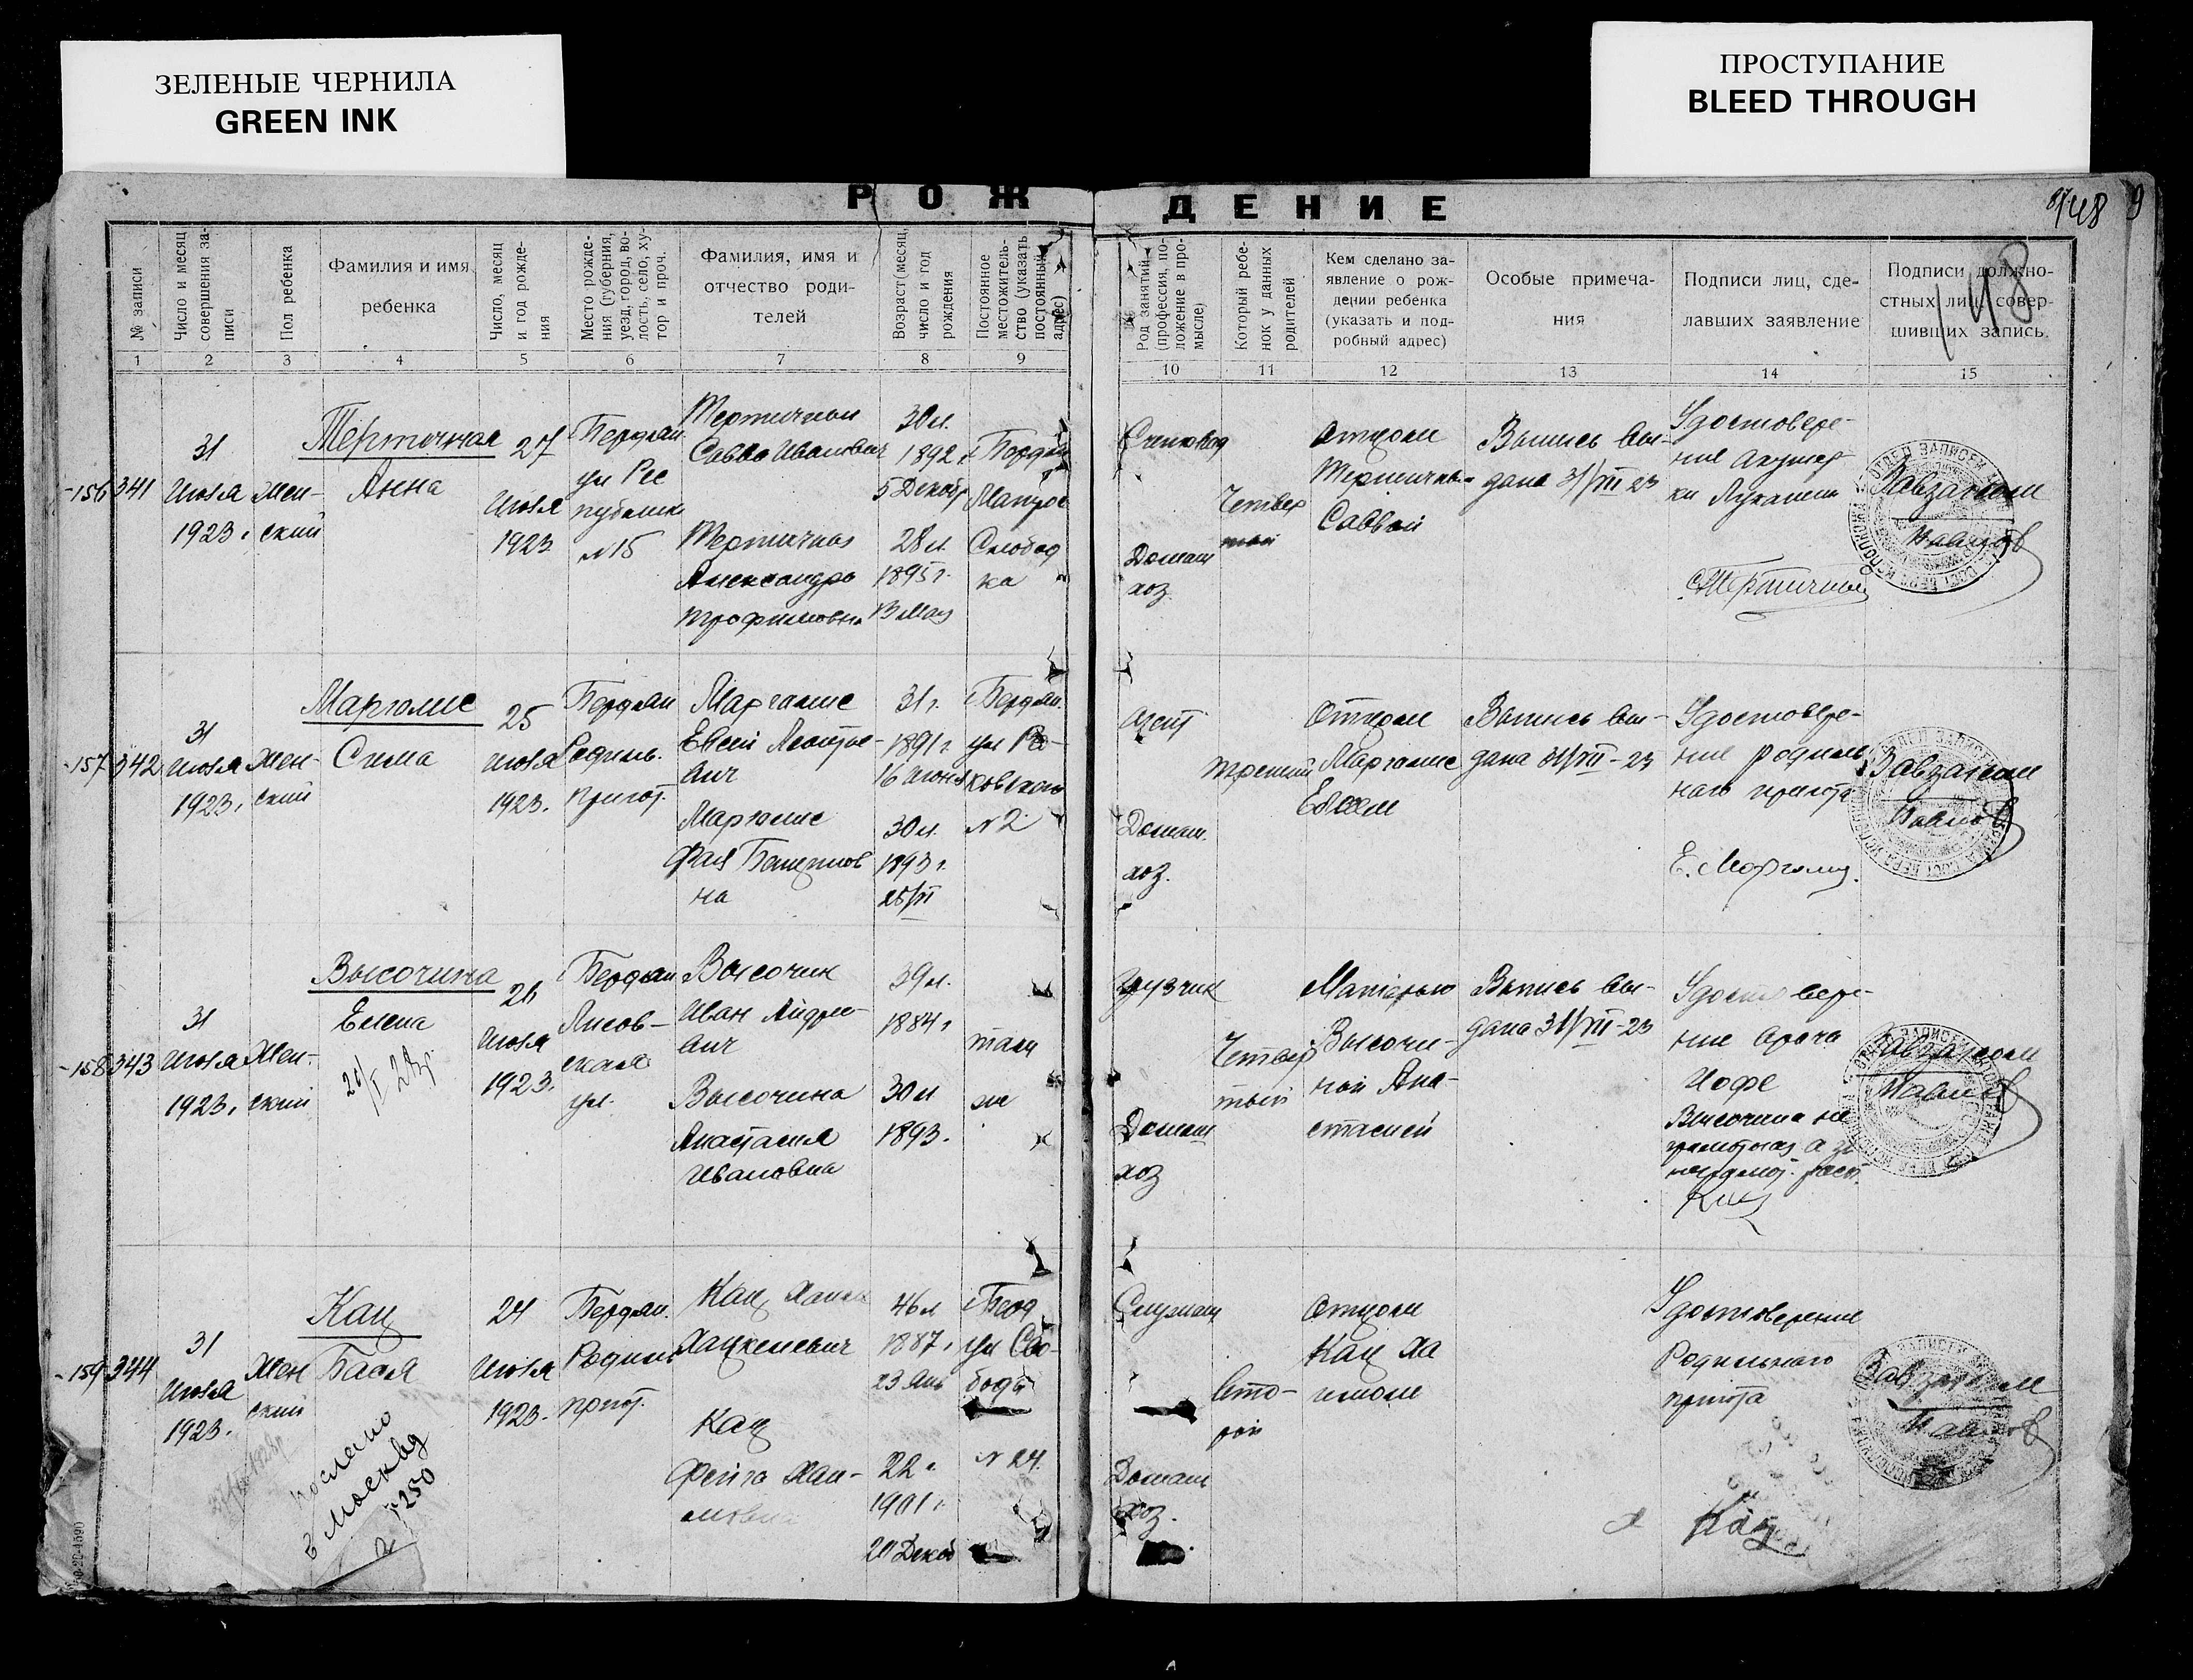 ЗЕЛЕНЫЕ ЧЕРНИЛА
GREEN INK
ПРОСТУПАНИЕ
BLEED THROUGH
РОЖДЕНИЕ
148
148
№ записи
Число и месяц совершения записи
Пол ребенка
Фамилия и имя
ребенка
Число, месяц и год рождения
Место рождения (губерния, уезд, город, волость, село, хутор и проч.
Фамилия, имя и
отчество роди-
телей
Возраст (месяц, число и год рождения
Постоянное местожительство (указать постоянный адрес)
Род занятий (профессия, положение в промысле)
Который ребенок у данных родителей
Кем сделано за-
явление о рож-
дении ребенка
(указать и под-
робный адрес)
Особые примеча-
ния
Подписи лиц, сде-
лавших заявление
Подписи должно-
стных лиц, совер-
шивших запись.
1 2 3 4 5 6 7 8 9 10 11 12 13 14 15
156 341
31
Июля
1923.
Жен-
ский
Тертичная
Анна
27
Июля
1923
Бердян
ул Рес
публики
№ 15
Тертичный
Савва Иванович
Тертичная
Александра
Трофимовна
30 л.
1892 г.
5 Декабр
28 л.
1895 г.
13 Мая
Слобод
ка
Счетовод
Домаш
хоз.
Четвер
тый
Отцом
Саввой
Выпись вы-
дана 31/VII 23
Удостовере-
ние акушер
ки
Завзагсом
157 342
31
Июля
1923.
Жен-
ский
Марголис
Сима
25
Июля
1923.
Бердян
Родиль.
приют.
Марголис
Евсей
вич
Марголис
Фаня
на
31 г.
1891 г.
16 Июня
30 л.
1893 г.
Бердян.
№ 2
Агент
Домаш.
хоз.
третий
Отцом
Марголис
Евсеем
Выпись вы-
дана 31/VII-23
Удостовере-
ние родиль
наго приюта
Е. Марголис.
Завзагсом
158 343
31
Июля
1923.
Жен-
ский
Высочина
Елена
26
Июля
1923.
Бердян
Лисов-
ская
ул.
Высочин
Иван Андре-
вич
Высочина
Анастасия
Ивановна
39 л.
1884 г
30 л
1893.
там
же
Грузчик
Домаш
хоз
Четвер
тый
Матерью
Высочи-
ной Ана-
стасией
Выпись вы-
дана 31/VII-23
Удостовере-
ние врача
Иофе
Высочина не
грамотная а за
Завзагсом
159 344
31
Июля
1923.
Жен
ский
Кац
Бася
послано
в Москву
№ 250
24
Июля
1923.
Бердян.
Родиль
приют.
Кац Хаим
Хацкелевич
Кац
Фейга Хаи-
мовна
46 л
1887 г
23 Янв
22 г.
1901 г.
20 Декаб
ул Сво-
боды
№ 24.
Служащ
Домаш
хоз.
вто-
рой
Отцом
Кац Ха
имом
Удостоверение
Родильнаго
приюта
Кац
Завзагсом